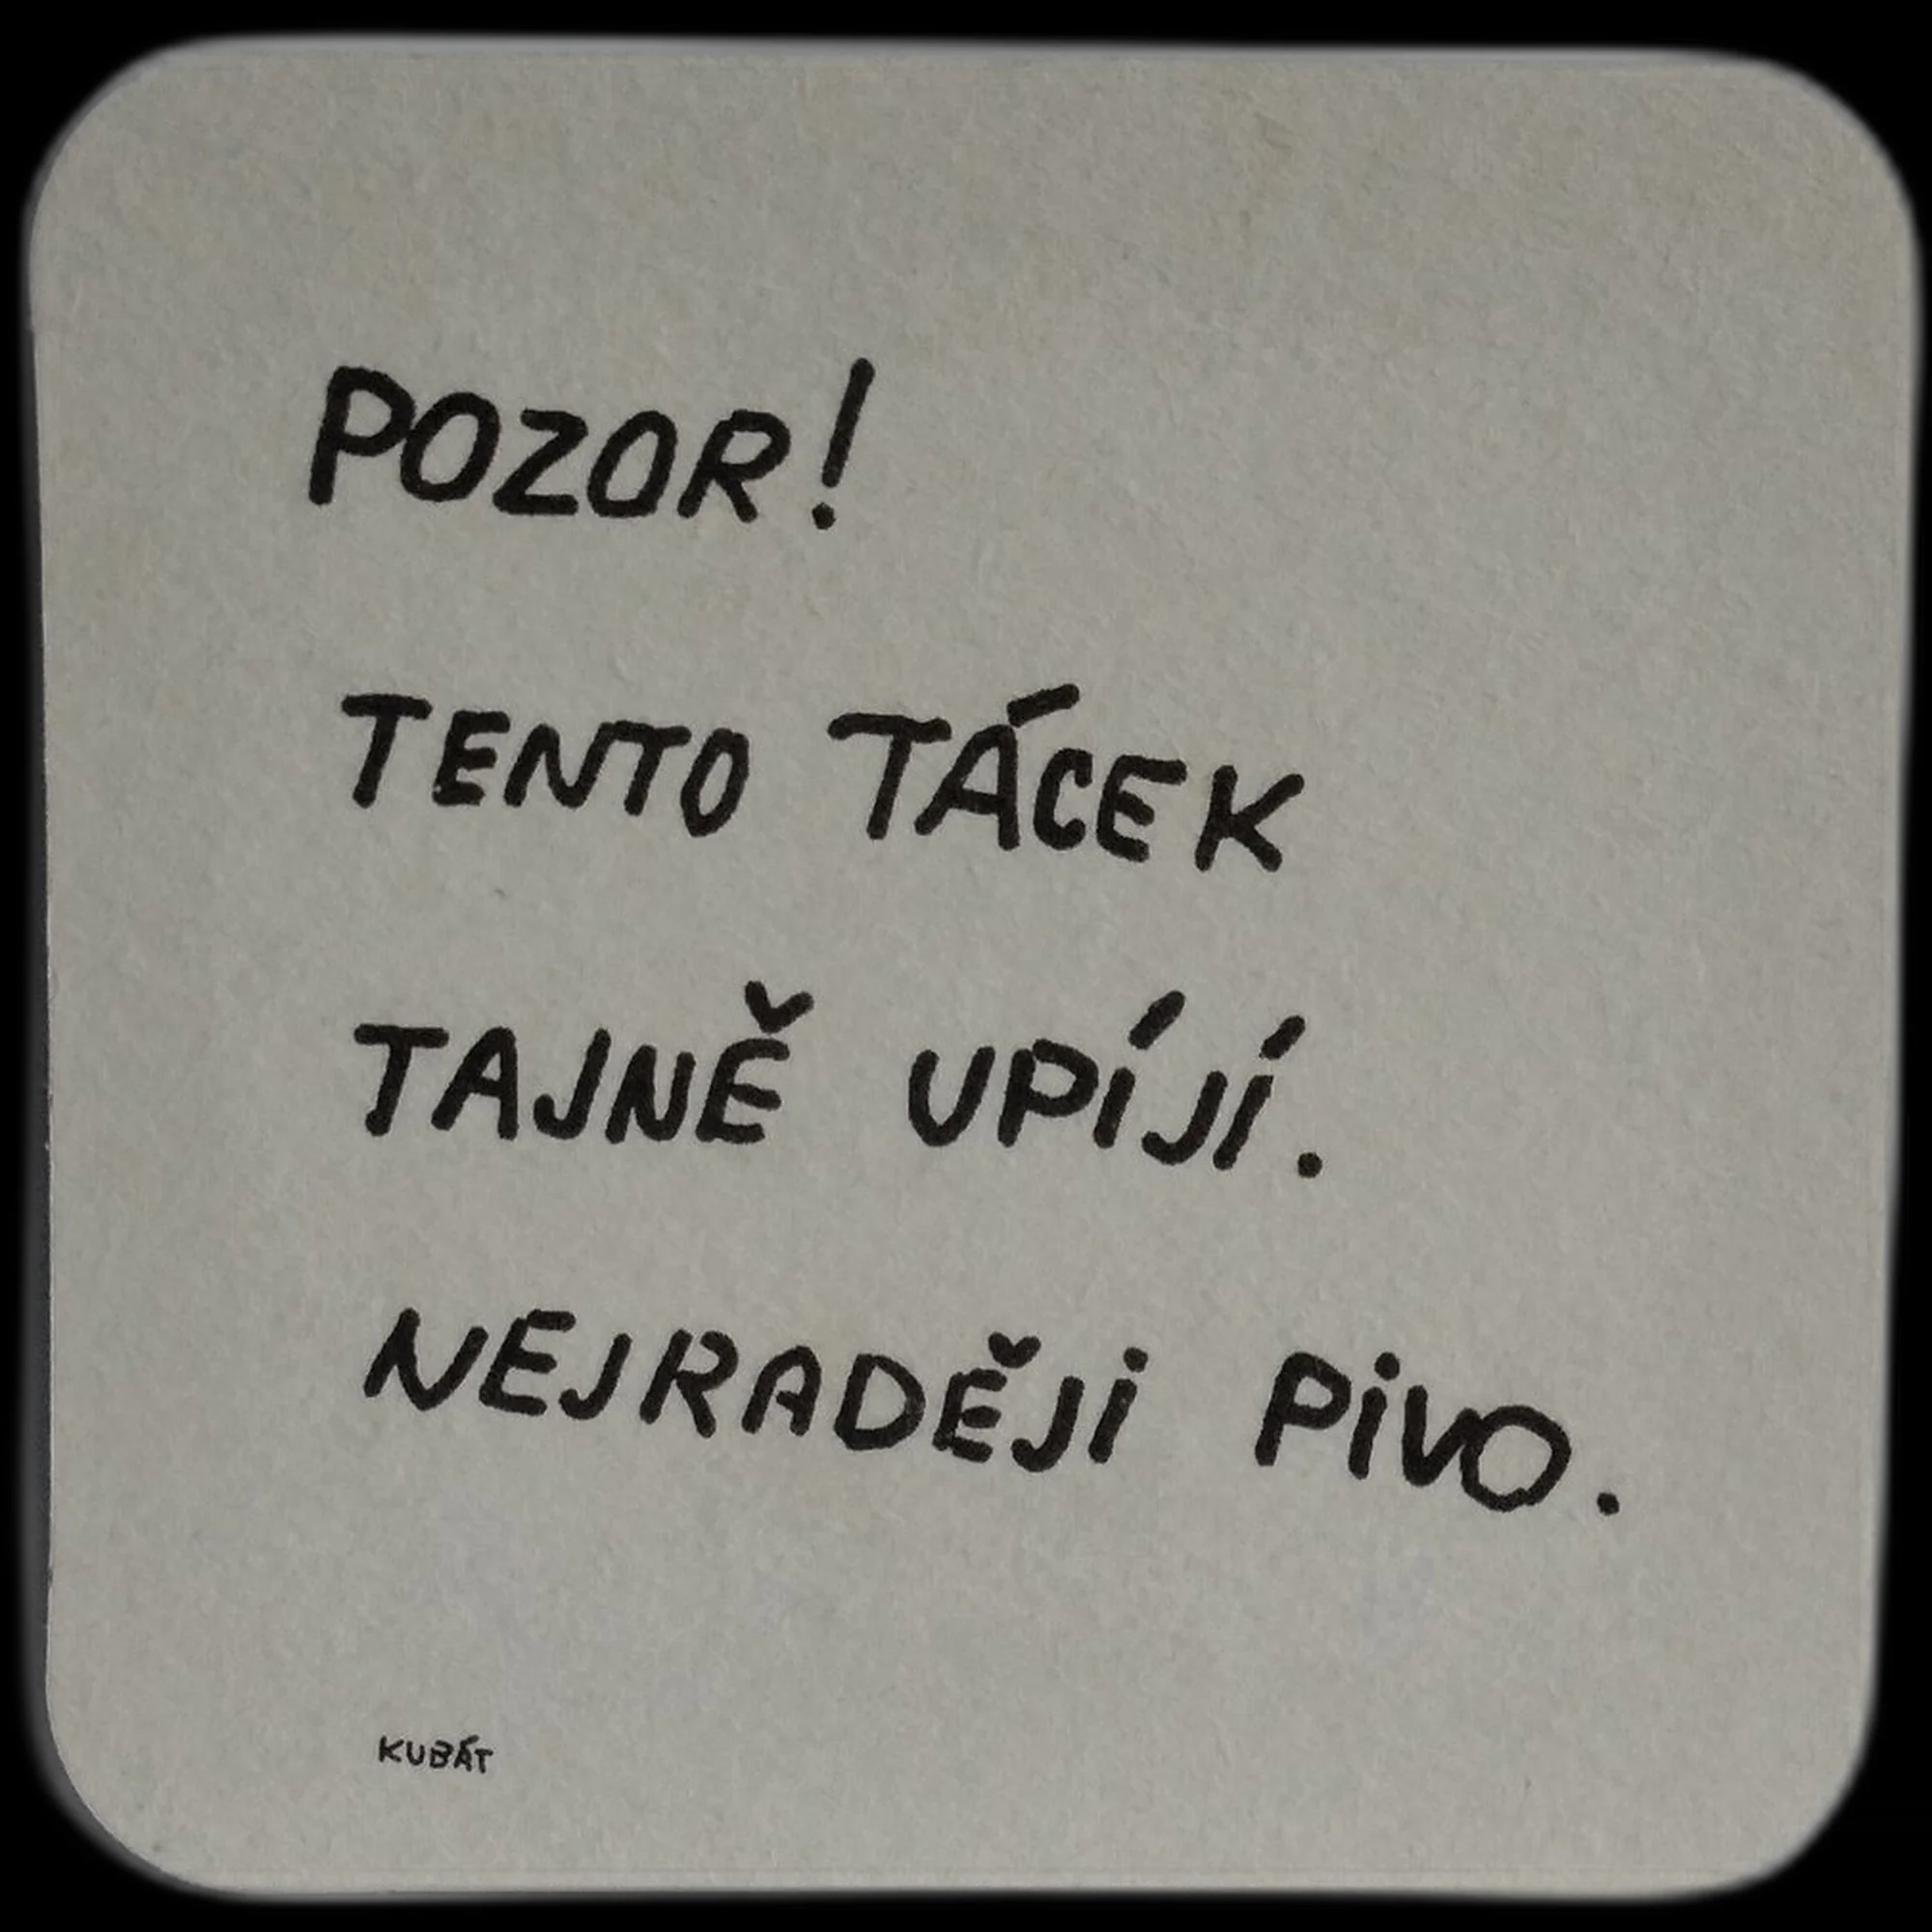 POZOR!
TENTO TÁCEK
TAJNĚ UPÍJÍ.
NEJRADĚJI PIVO.
KUBÁT